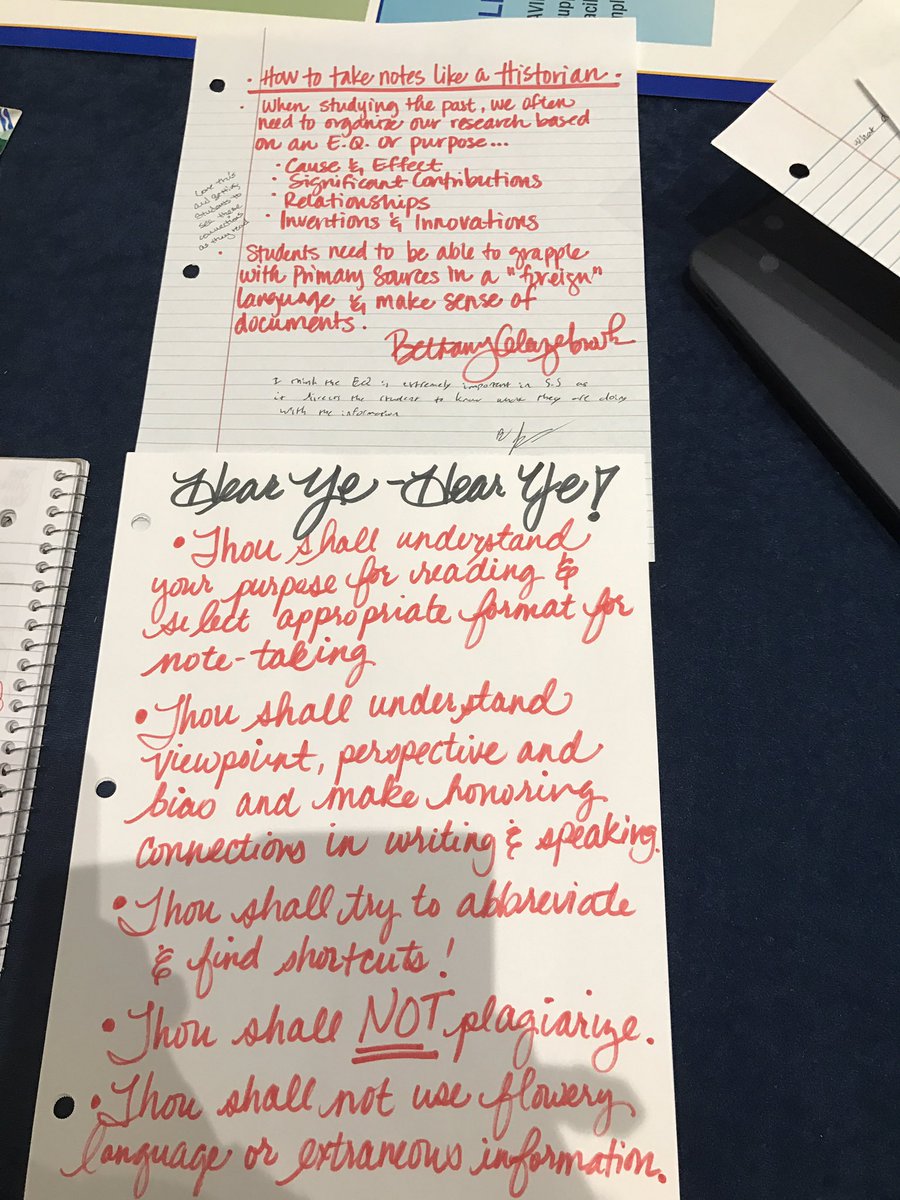 · How to take notes like a Historian.
· When studying the past, we often
need to organize our research based
on an E.Q. or purpose...
· Cause & Effect
· Significant Contributions
· Relationships
· Inventions & Innovations
Love this
and getting
students to
see these
connections
as they read
· Students need to be able to grapple
with Primary Sources in a "foreign"
language & make sense of
documents.
Bethany
I think the EQ is extremely important in S.S as
it directs the student to know what they are doing
with the information
Hear Ye - Hear Ye!
• Thou shall understand
your purpose for reading &
select appropriate format for
note-taking
• Thou shall understand
viewpoint, perspective and
bias and make honoring
connections in writing & speaking.
• Thou shall try to abbreviate
& find shortcuts!
• Thou shall NOT plagiarize.
• Thou shall not use flowery
language or extraneous information.
What